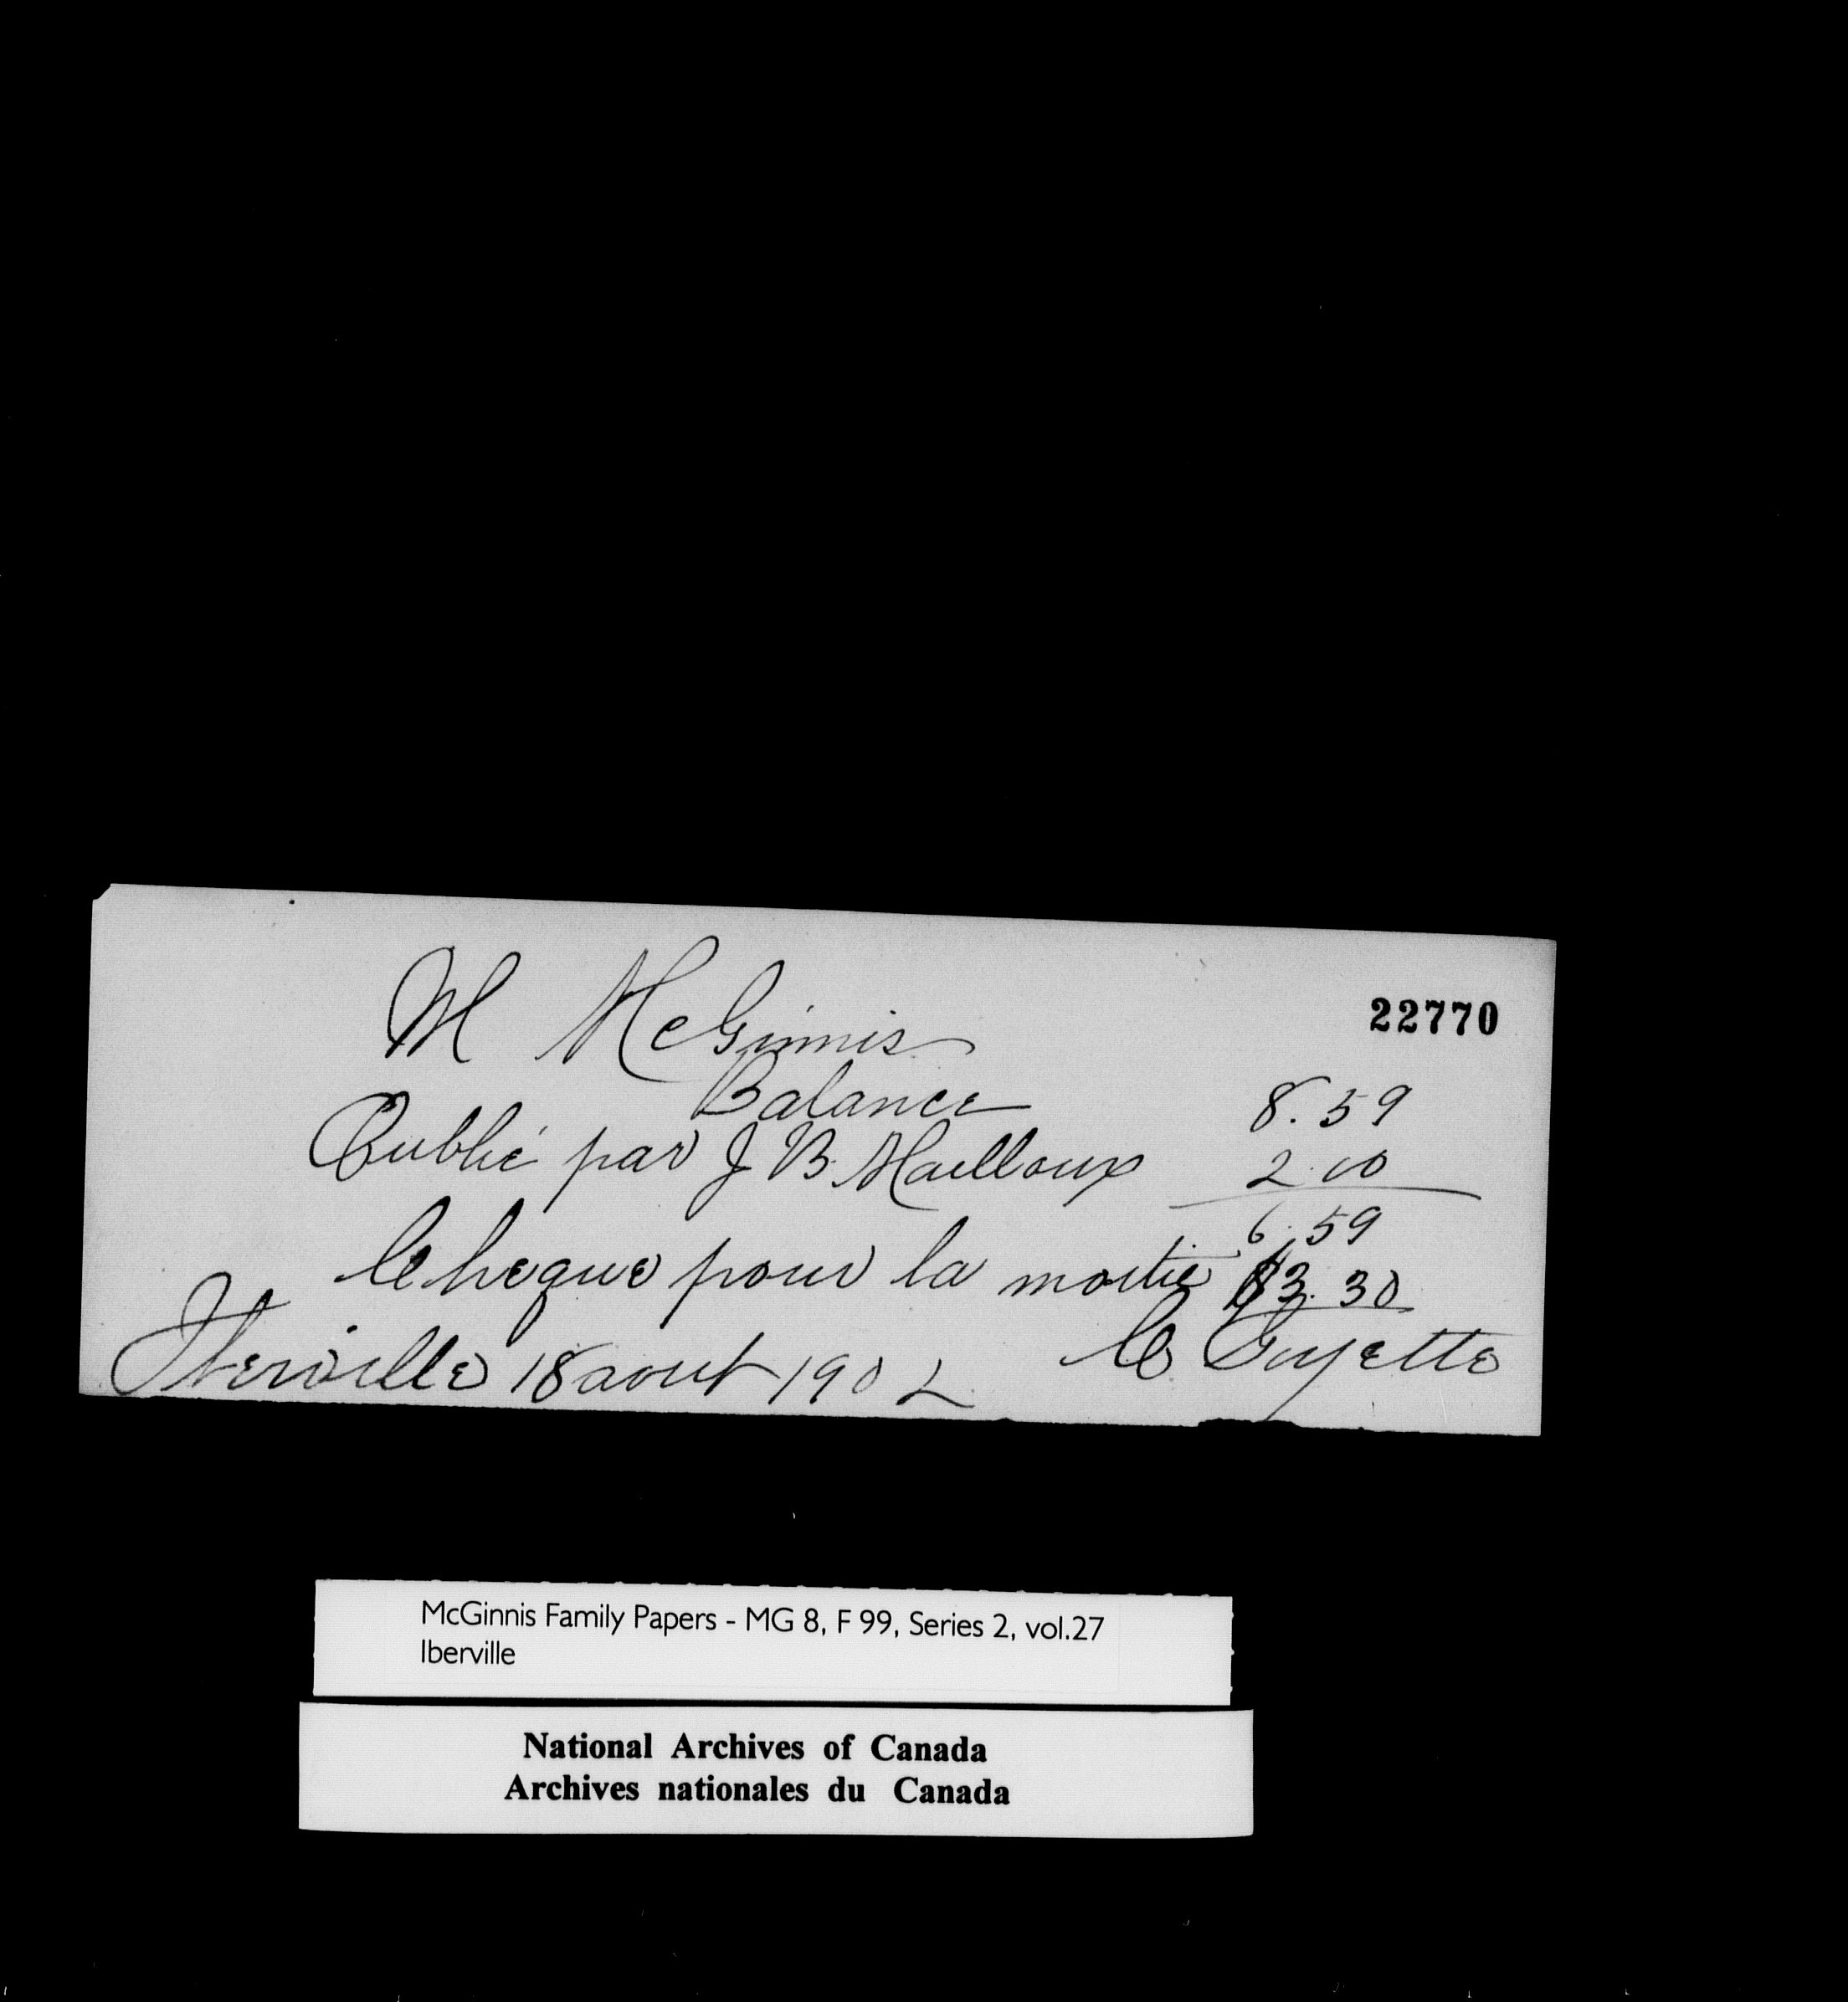 22770
M McGinnis
Balance 8.59
Oublié par J B. Mailloux 2.00
6.59
Cheque pour la moitie $3.30
Iberville 18 aout 1902 C Goyette
McGinnis Family Papers - MG 8, F 99, Series 2, vol.27
Iberville
National Archives of Canada
Archives nationales du Canada